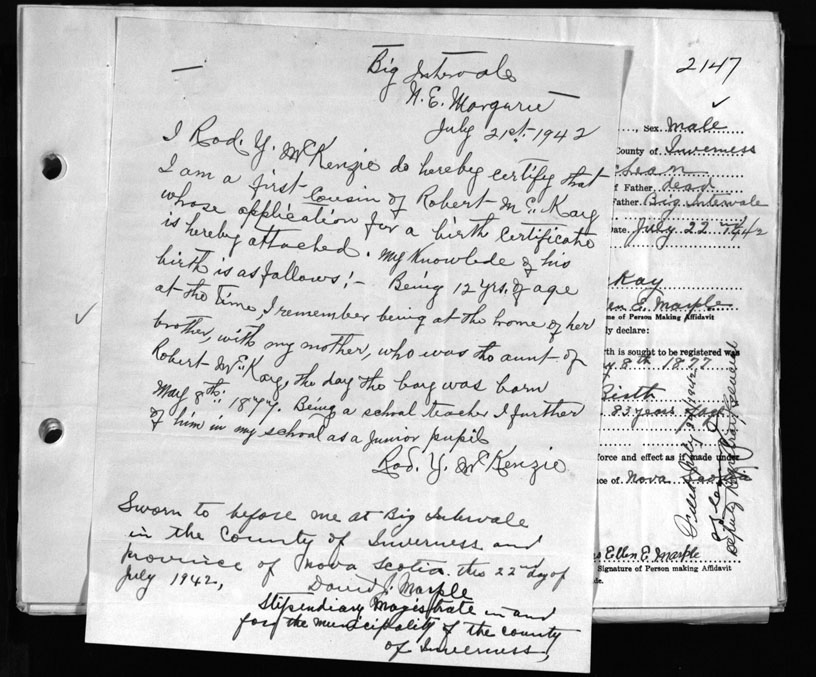 Big Intervale
N. E. Margarie
July 21st 1942
I Rod. Y. McKenzie do hereby certify that
I am a first Cousin of Robert McKay
whose application for a birth certificate
is hereby attached. My Knowlede of his
birth is as follows:- Being 12 yrs. of age
at the time, I remember being at the home of her
brother, with my mother, who was the aunt of
Robert McKay, the day the boy was born
May 8th. 1877. Being a school teacher I further
of him in my school as a Junior pupil
Rod. Y. McKenzie
Sworn to before me at Big Intervale
in the County of Inverness and
province of Nova Scotia. this 22nd day of
July 1942,
David J. Marple
Stipendiary Magistrate in and
for the municipality of the county
of Inverness,
2147
Sex Male
County of Inverness
Father dead
Father. Big Intervale
Date. July 22nd 1942
Kay
en E. Marple
me of Person Making Affidavit
ly declare:
rth is sought to be registered was
y 8th 1877
Birth
83 years
force and effect as if made under
ce of Nova
Ellen E. Marple
Signature of Person making Affidavit
Deputy Registrar General